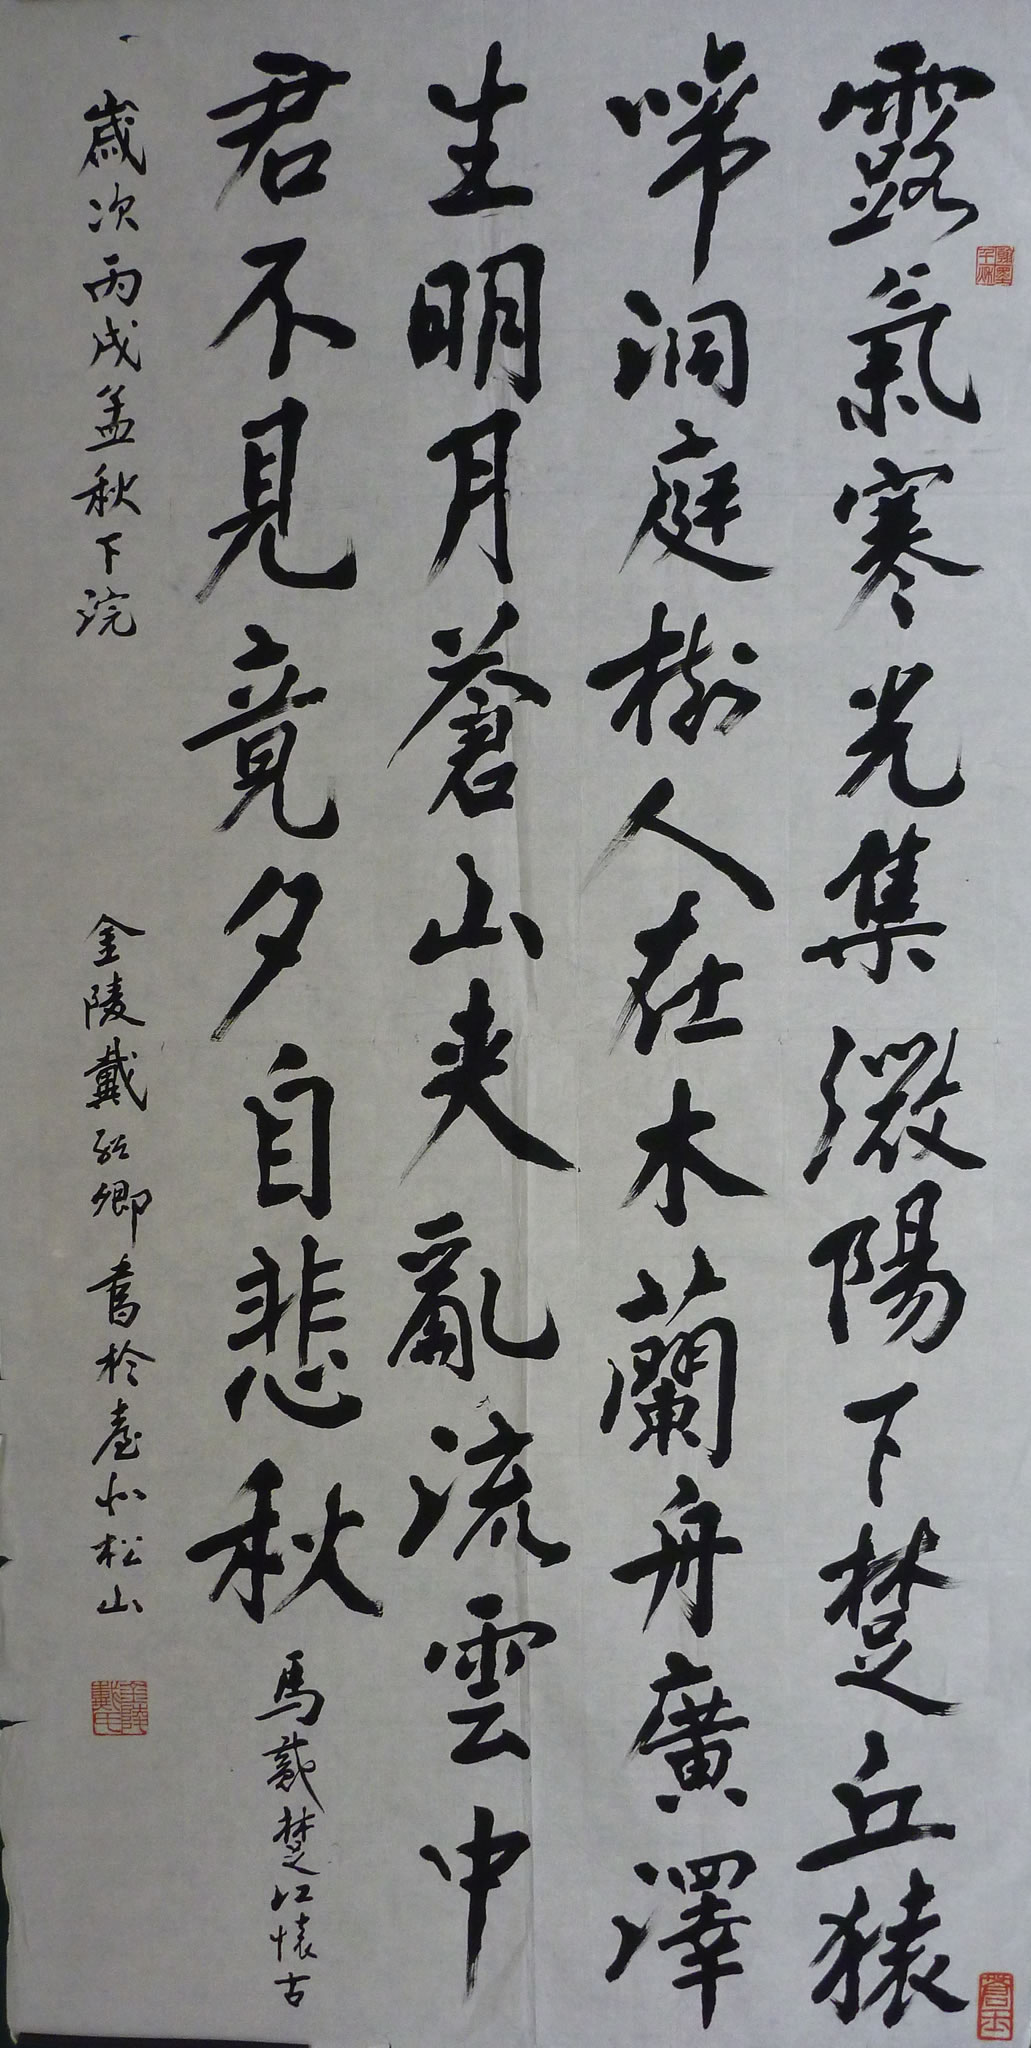 露氣寒光集微陽下楚丘猿
啼洞庭樹人在木蘭舟廣澤
生明月蒼山夾亂流雲中
君不見竟夕自悲秋
馬戴楚江懷古
歲次丙戌孟秋下浣
金陵戴 卿書於臺北松山